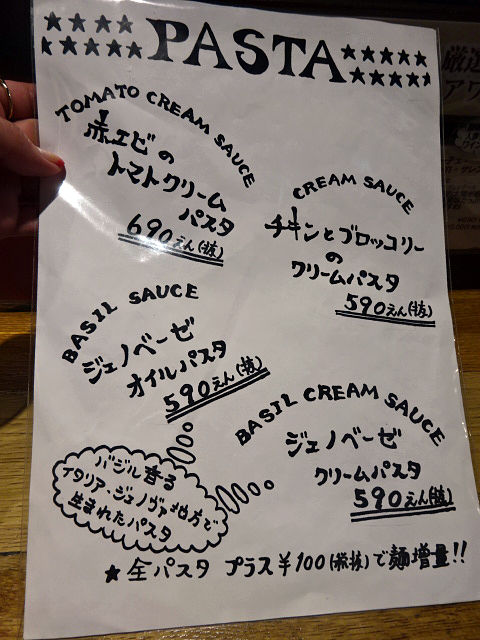 ★★★★PASTA★★★★★
★★★★★★ ★★★★★★
TOMATO CREAM SAUCE
赤エビの
トマトクリーム
パスタ
690えん(抜)
CREAM SAUCE
チキンとブロッコリー
の
クリームパスタ
590えん(抜)
BASIL SAUCE
ジェノベーゼ
オイルパスタ
590えん(抜)
BASIL CREAM SAUCE
ジェノベーゼ
クリームパスタ
590えん(抜)
バジル香る
イタリア・ジェノヴァ地方で
生まれたパスタ
★全パスタ プラス¥100(税抜)で麺増量!!